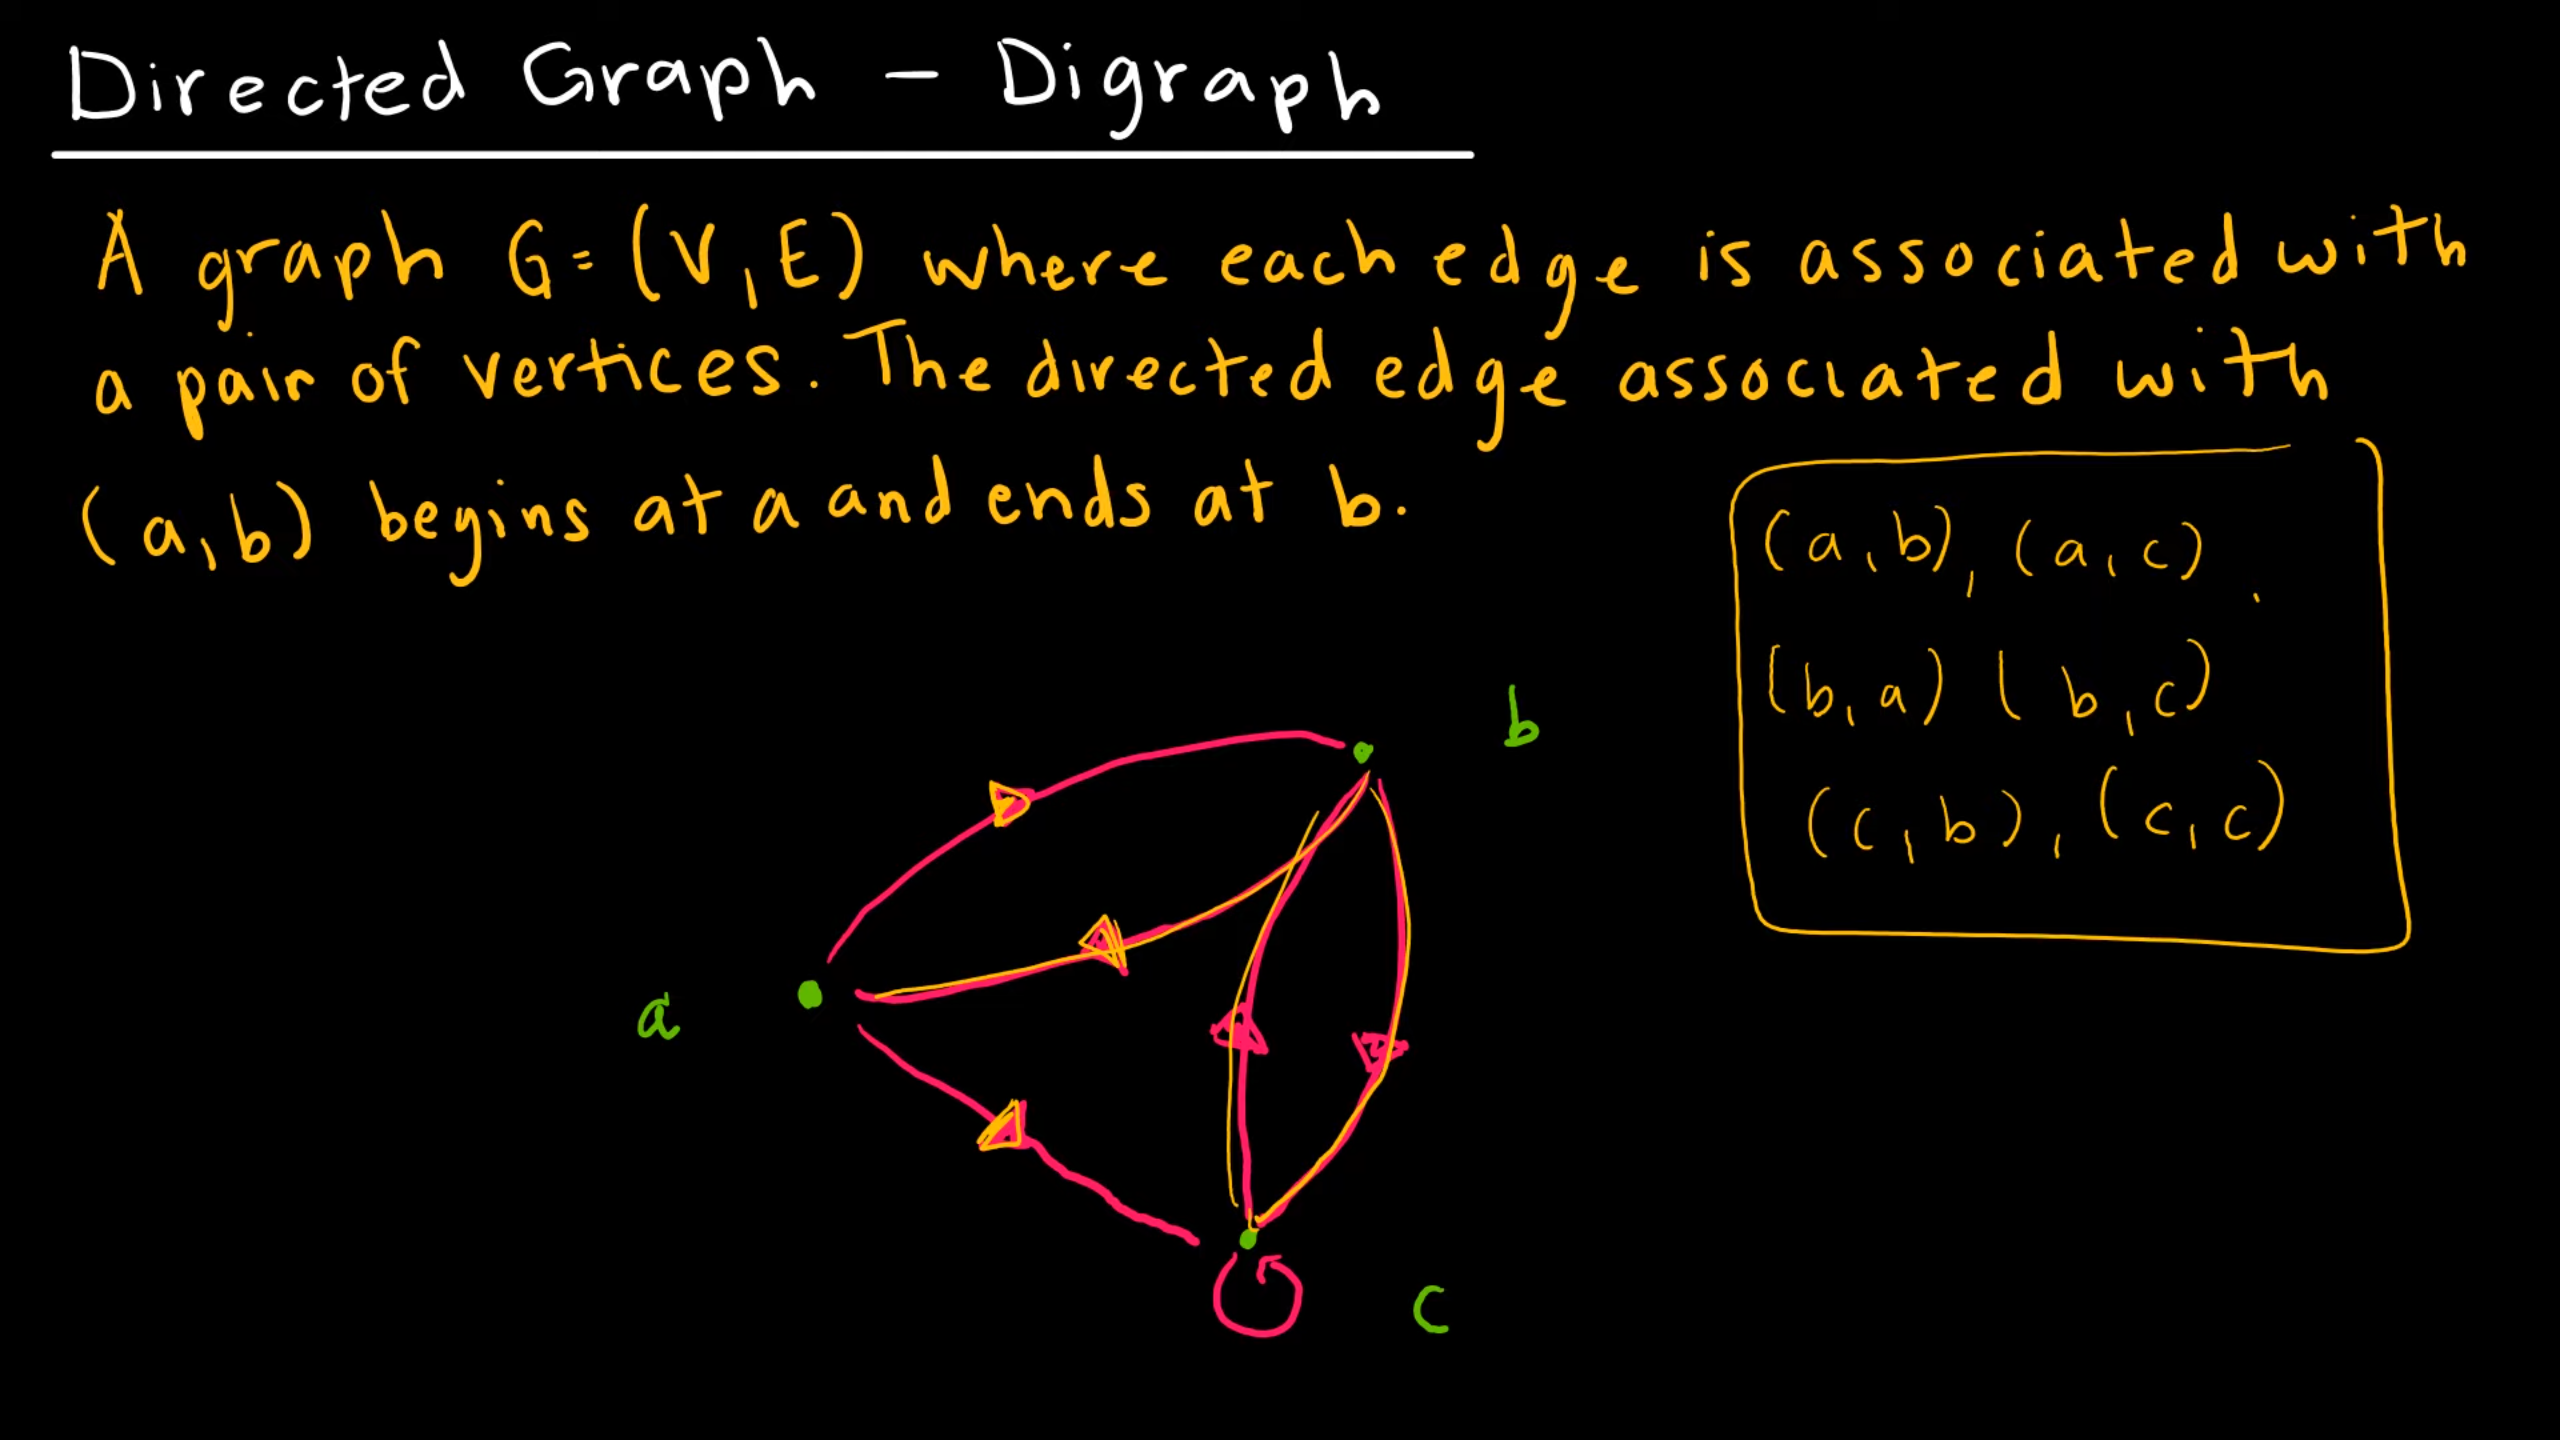 Directed Graph - Digraph
A graph G=(V,E) where each edge is associated with
a pair of vertices. The directed edge associated with
(a,b) begins at a and ends at b.
(a,b), (a,c)
(b,a) (b,c)
(c,b), (c,c)
b
a
c